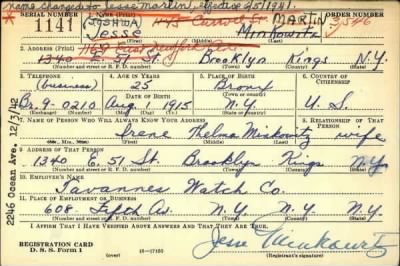 name changed to Jesse Marlin, effective 2/5/1941.
SERIAL NUMBER 1. NAME (Print) ORDER NUMBER
1141 Jesse Minkowitz MARTIN 3546
(First) (Middle) (Last)
2. ADDRESS (Print) 1169 East New York Ave.
1340 E. 51 St. Brooklyn Kings N.Y.
(Number and street or R. F. D. number) (Town) (County) (State)
3. TELEPHONE 4. AGE IN YEARS 5. PLACE OF BIRTH 6. COUNTRY OF CITIZENSHIP
(business) 25 Bronx
DATE OF BIRTH
9-0210 Aug. 1 1915 N.Y. U.S.
(Exchange) (Number) (Mo.) (Day) (Yr.) (State or country)
7. NAME OF PERSON WHO WILL ALWAYS KNOW YOUR ADDRESS 8. RELATIONSHIP OF THAT PERSON
Irene Thelma Minkowitz wife
(Mr., Mrs., Miss) (First) (Middle) (Last)
9. ADDRESS OF THAT PERSON
1340 E. 51 St. Brooklyn Kings N.Y.
(Number and street or R. F. D. number) (Town) (County) (State)
10. EMPLOYER'S NAME
Tavannes Watch Co.
11. PLACE OF EMPLOYMENT OR BUSINESS
608 Fifth Av. N.Y. N.Y. N.Y.
(Number and street or R. F. D. number) (Town) (County) (State)
I AFFIRM THAT I HAVE VERIFIED ABOVE ANSWERS AND THAT THEY ARE TRUE.
REGISTRATION CARD
D. S. S. Form 1 (over) 16-17105
Jesse Minkowitz
(Registrant's signature)
2246 Ocean Ave. 12/3/42